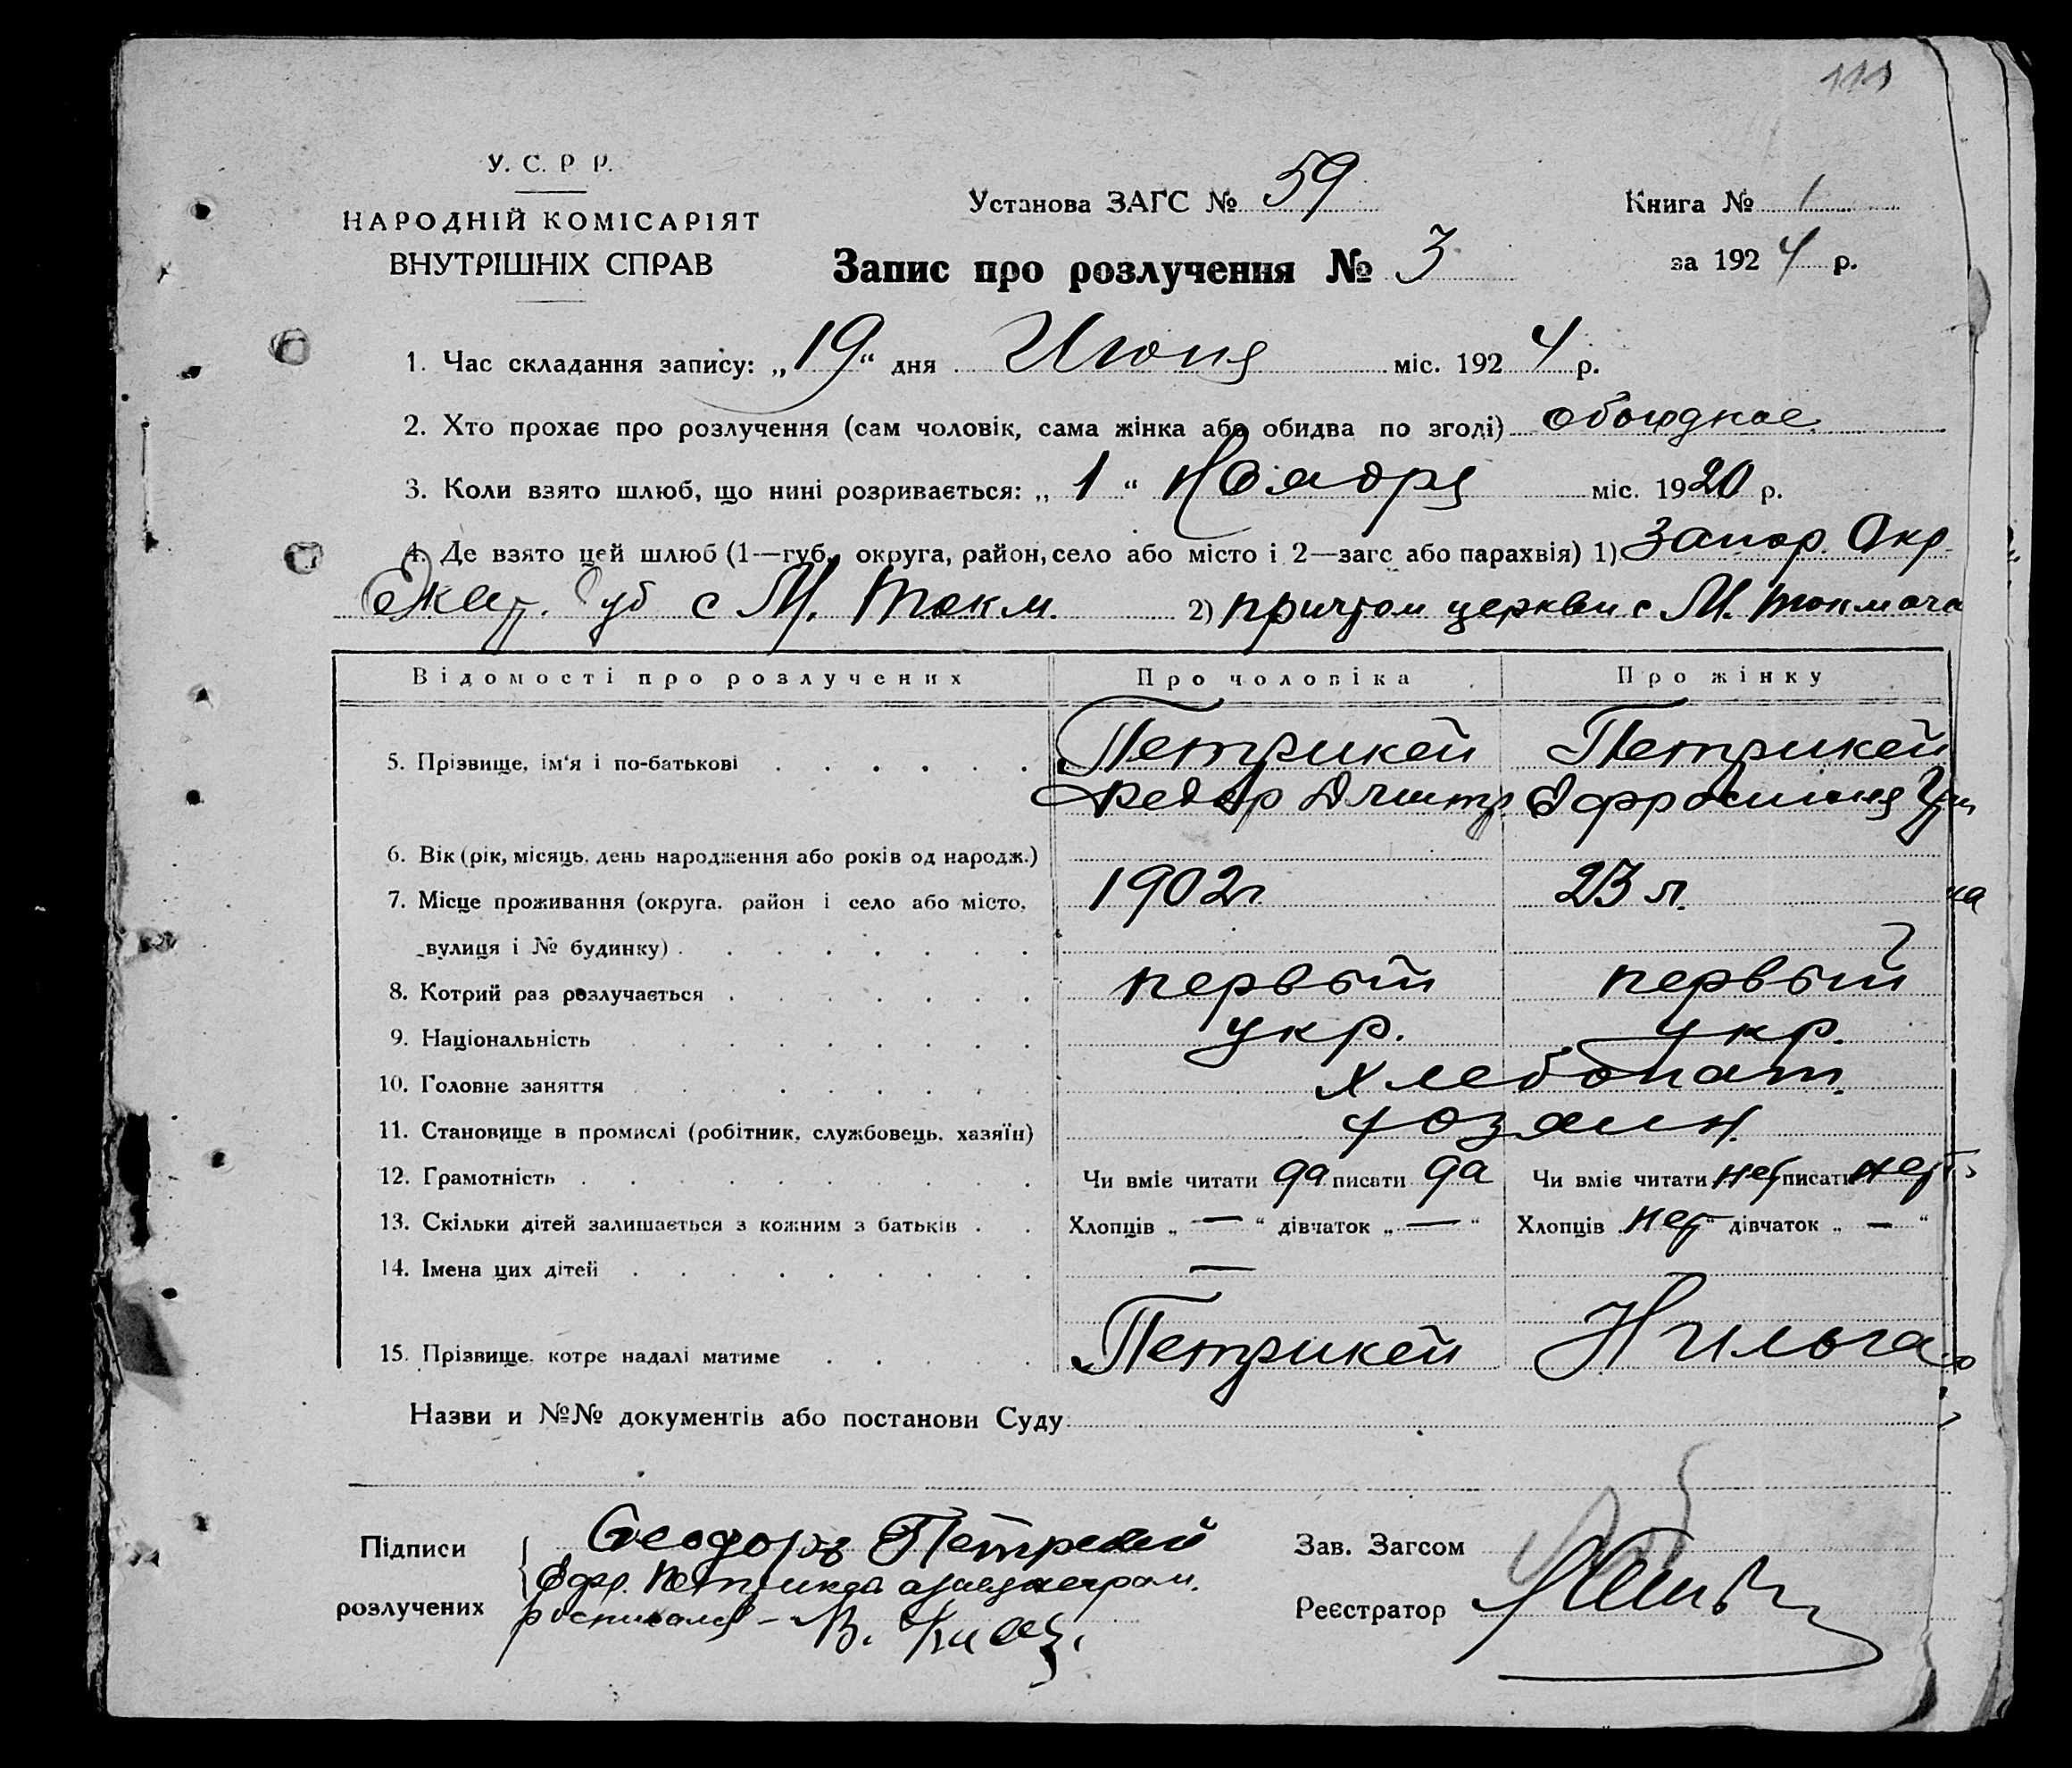 111
У. С. Р Р.
НАРОДНІЙ КОМІСАРІЯТ
ВНУТРІШНІХ СПРАВ
Установа ЗАГС № 59
Книга № 1
Запис про розлучення № 3
за 1924 р.
1. Час складання запису: „19“ дня Июня міс. 1924 р.
2. Хто прохає про розлучення (сам чоловік, сама жінка або обидва по згоді) обоюдное
3. Коли взято шлюб, що нині розривається: „1“ Ноября міс. 1920 р.
4. Де взято цей шлюб (1—губ., округа, район, село або місто і 2—загс або парахвія) 1) Запор. Окр
Екат. Губ с М. Токм. 2) причтом церкви с М. Токмача
Відомості про розлучених Про чоловіка Про жінку
5. Прізвище, ім'я і по-батькові Петрикей Петрикей
Федор Дмитр. Эфросиния
6. Вік (рік, місяць, день народження або років од народж.)
7. Місце проживання (округа, район і село або місто, 1902 г. 23 л.
вулиця і № будинку)
8. Котрий раз розлучається первый первый
9. Національність укр. укр.
10. Головне заняття хлебопаш.
11. Становище в промислі (робітник, службовець, хазяїн) хозяин.
12. Грамотність Чи вміє читати да писати да Чи вміє читати нет писати нет
13. Скільки дітей залишається з кожним з батьків Хлопців „—“ дівчаток „—“ Хлопців „нет“ дівчаток „—“
14. Імена цих дітей —
15. Прізвище, котре надалі матиме Петрикей
Назви и №№ документів або постанови Суду
Підписи Феодоръ Петрекей
Зав. Загсом
Ефр. Петрикей
розлучених росписался – В.
Реєстратор